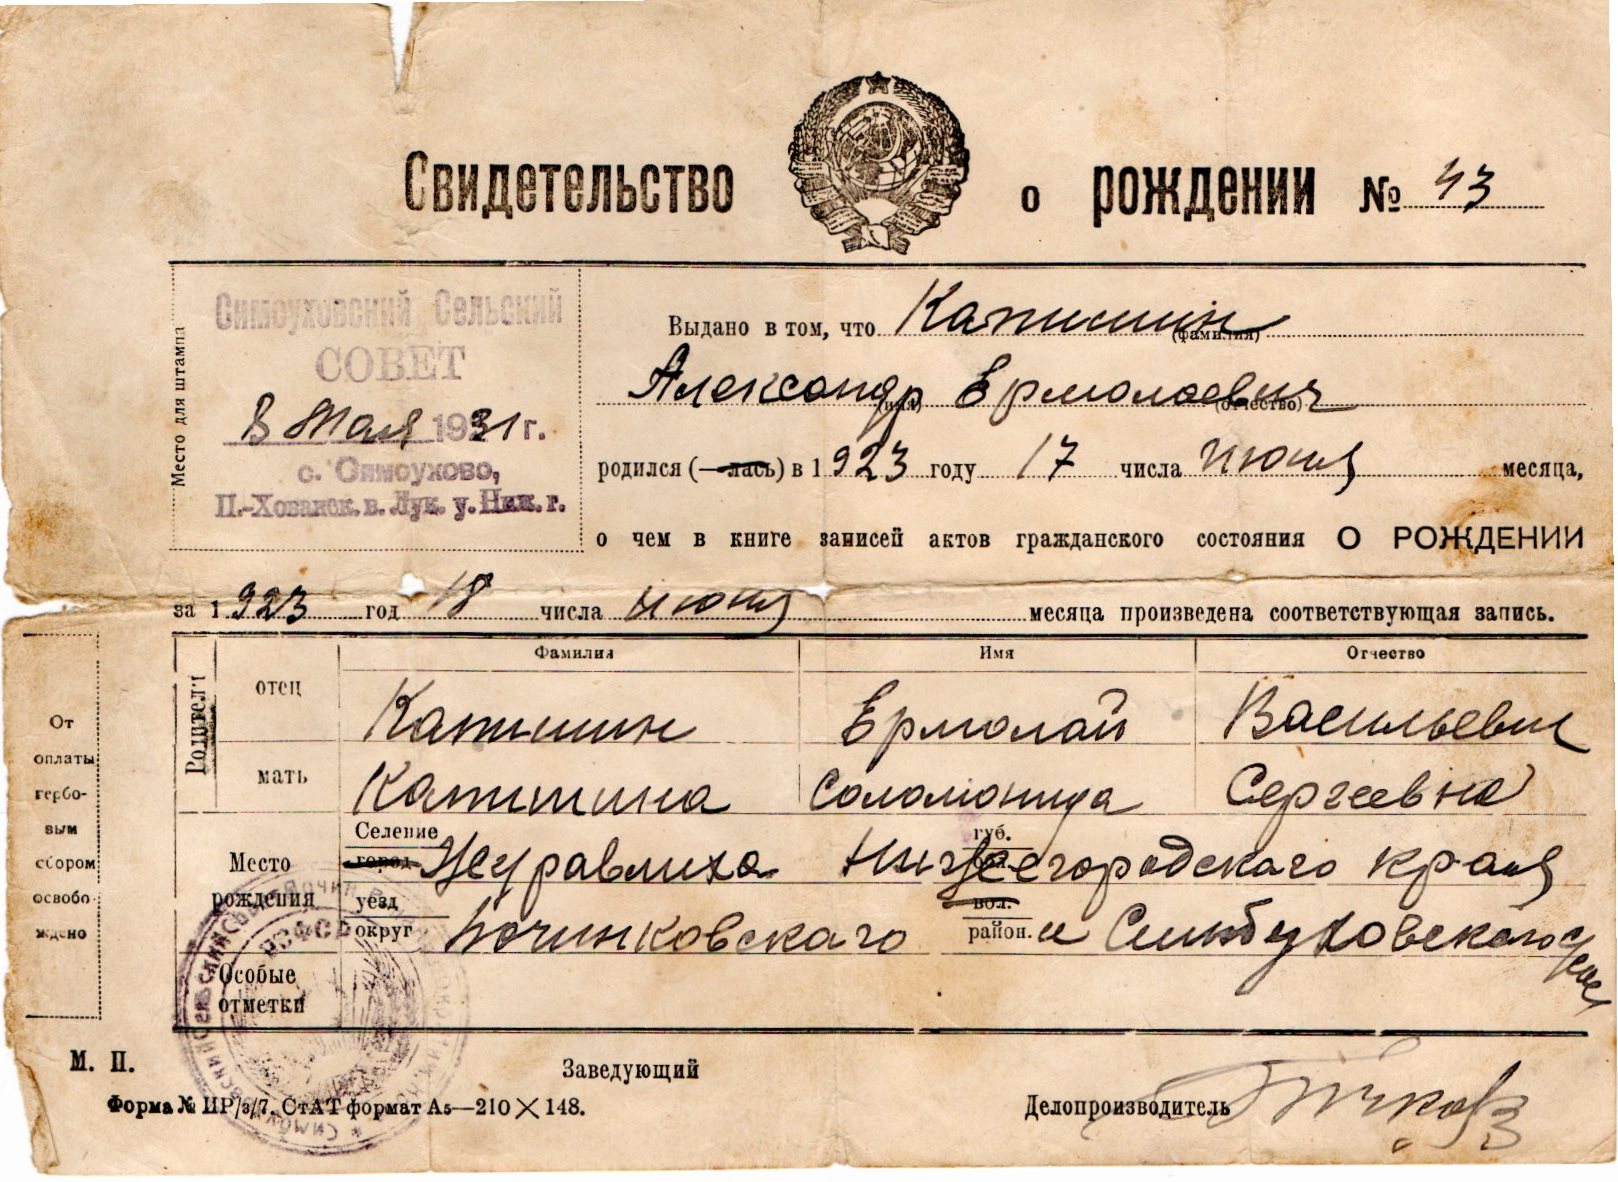 Свидетельство о рождении № 43
Место для штампа
Симбуховский Сельский
СОВЕТ
8 Мая 1931 г.
с. Симбухово,
П.-Хованск. в. Лук. у. Ниж. г.
Выдано в том, что Катишин
(фамилия)
Александр Ермолаевич
(имя) (отчество)
родился (—лась) в 1923 году 17 числа июня месяца,
о чем в книге записей актов гражданского состояния О РОЖДЕНИИ
за 1923 год 18 числа июня месяца произведена соответствующая запись.
От оплаты гербо-
вым
сбором
освобо-
ждено
Родители
Фамилия Имя Отчество
отец Катишин Ермолай Васильевич
мать Катишина Соломонида Сергеевна
Место рождения
Селение город Журавлиха губ. Нижегородского края
уезд округ Починковского вол. район. и Симбуховского с/сов
Особые отметки
РСФСР
М. П.
Заведующий
Форма № ИР/з/7. СтАТ формат А5—210×148.
Делопроизводитель